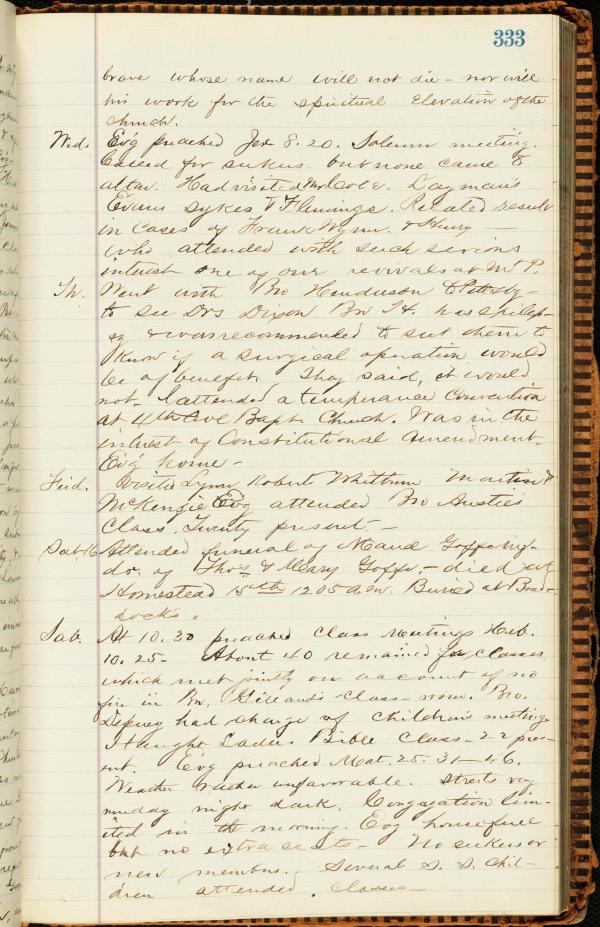 333
brave whose name will not die - nor will
his work for the spiritual Elevation of the
church.
Wed. Ev'g preached Jer 8.20. Solemn meeting.
but none came to
altar. Had visited Cole. Layman's
Evans Sykes & Flemings. Related result
in cases of Frank Wynn. & Henry —
who attended with such serious
interest one of our revivals at Mt P.
Th. Went with Bro Henderson to Pittsbg -
to see Drs Dixon Bro H. has epilep-
sy & was recommended to see them to
know if a surgical operation would
be of benefit. They said, it would
not. I attended a temperance Convention
at 4th Ave Bapt Church. Was in the
interest of Constitutional Amendment.
Ev'g home -
Frid. Visited Lynn Roberts Whittum Martin &
McKenzie Evg attended Bro Austie's
Class. Twenty present —
Sat 16 Attended funeral of Maud Goffe inf.
da. of Thos & Mary Goffe, - died at
Homestead 15th 12 05 a.m. Buried at Brad-
dock's.
Sab. At 10.30 preached Class Meetings Heb.
10. 25 - About 40 remained for classes.
which met jointly on account of no
fire in Bro. class-room. Bro.
had charge of children's meeting.
I taught Ladies Bible Class - 22 pres-
ent. Evg preached Mat. 25. 31-46.
Weather rather unfavorable. Streets very
muddy night dark, Congregation lim-
ited in the morning. Evg house full
but no extra seats - No seekers or
new members. Several S. S. Chil-
dren attended classes -